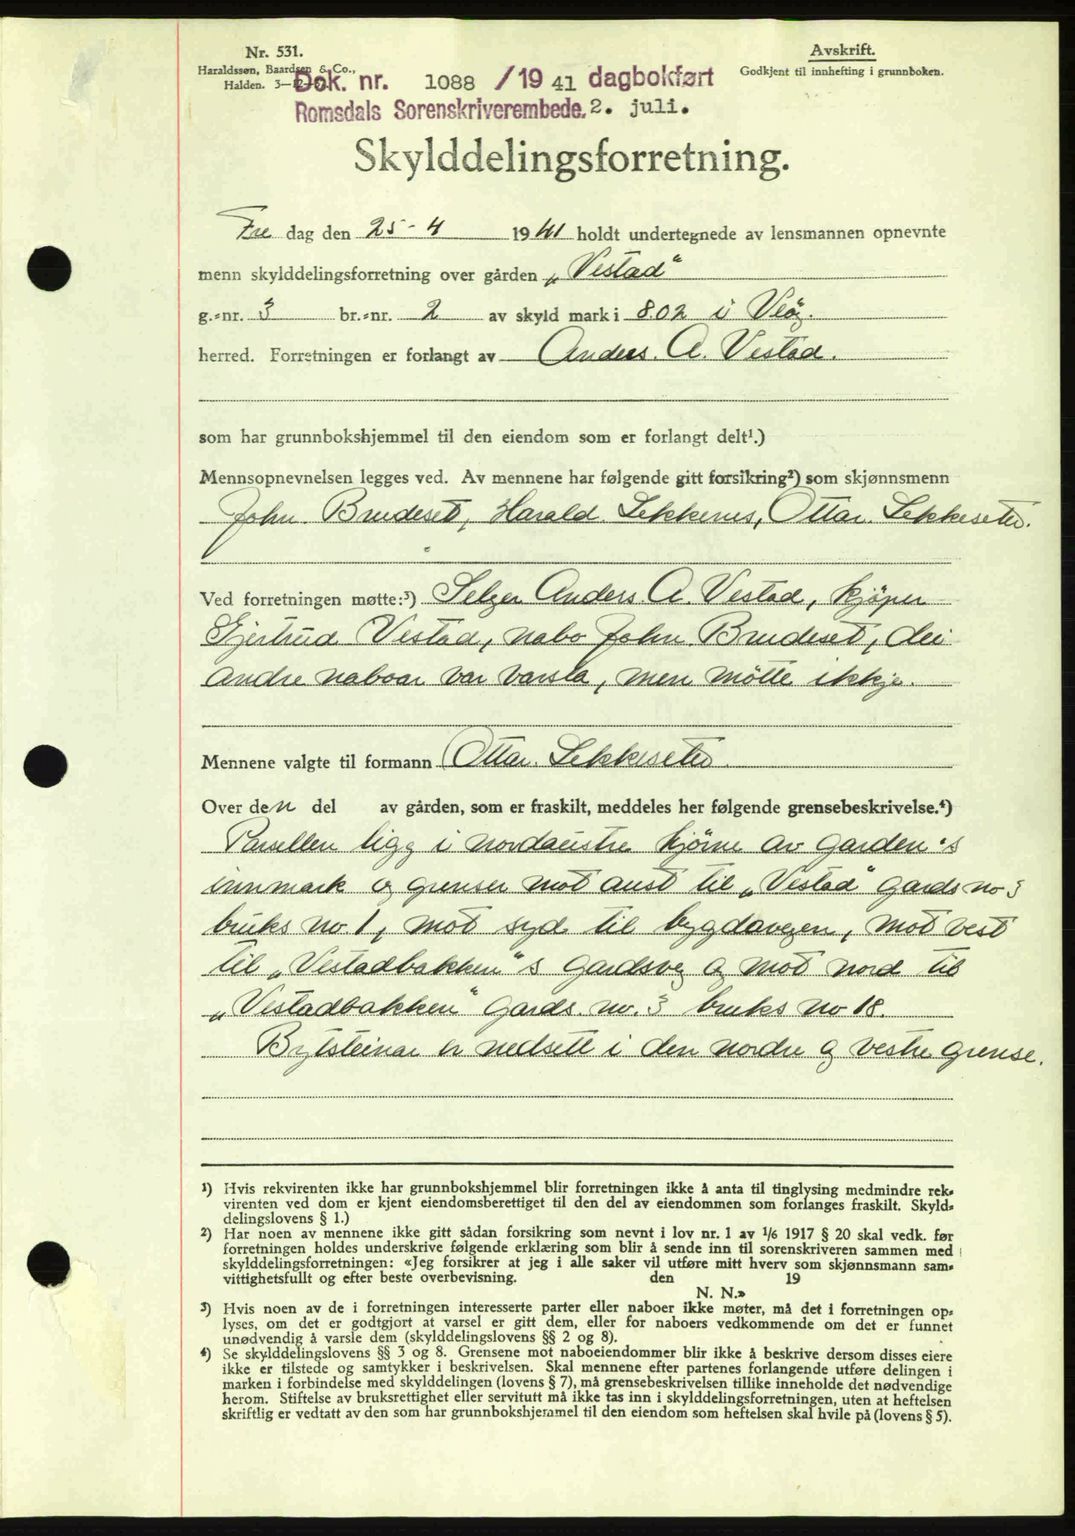 Nr. 531.
Haraldssøn, Baardsen & Co.,
Halden. 3—12—
Avskrift.
Godkjent til innhefting i grunnboken.
Dok. nr. 1088 /19 41 dagbokført
Romsdals Sorenskriverembede. 2. juli.
Skylddelingsforretning.
Fre dag den 25-4 1941 holdt undertegnede av lensmannen opnevnte
menn skylddelingsforretning over gården „Vestad“
g.-nr. 3 br.-nr. 2 av skyld mark i 8.02 i Veöy.
herred. Forretningen er forlangt av Anders. A. Vestad.
som har grunnbokshjemmel til den eiendom som er forlangt delt¹.)
Mennsopnevnelsen legges ved. Av mennene har følgende gitt forsikring²) som skjønnsmenn
John. Brudeset, Harald. Sekkenes, Ottar. Sekkeseter.
Ved forretningen møtte:³) Selger Anders. A. Vestad, kjöper
Gjertrud Vestad, nabo John. Brudeset, dei
andre naboar var varsla, men mötte ikkje.
Mennene valgte til formann Ottar. Sekkeseter.
Over den del av gården, som er fraskilt, meddeles her følgende grensebeskrivelse.⁴)
Parsellen ligg i nordaustre hjörne av garden's
innmark og grenser mot aust til „Vestad“ gards no 3
bruks no. 1, mot syd til bygdavegen, mot vest
til „Vestadbakken“s gardsveg og mot nord til
„Vestadbakken“ gards. no. 3 bruks no 18.
Bytsteinar er nedsett i den nordre og vestre grense.
¹) Hvis rekvirenten ikke har grunnbokshjemmel blir forretningen ikke å anta til tinglysing medmindre rek-
virenten ved dom er kjent eiendomsberettiget til den del av eiendommen som forlanges fraskilt. Skyld-
delingslovens § 1.)
²) Har noen av mennene ikke gitt sådan forsikring som nevnt i lov nr. 1 av 1/6 1917 § 20 skal vedk. før
forretningen holdes underskrive følgende erklæring som blir å sende inn til sorenskriveren sammen med
skylddelingsforretningen: «Jeg forsikrer at jeg i alle saker vil utføre mitt hverv som skjønnsmann sam-
vittighetsfullt og efter beste overbevisning. den 19
N. N.»
³) Hvis noen av de i forretningen interesserte parter eller naboer ikke møter, må det i forretningen op-
lyses, om det er godtgjort at varsel er gitt dem, eller for naboers vedkommende om det er funnet
unødvendig å varsle dem (skylddelingslovens §§ 2 og 8).
⁴) Se skylddelingslovens §§ 3 og 8. Grensene mot naboeiendommer blir ikke å beskrive dersom disses eiere
ikke er tilstede og samtykker i beskrivelsen. Skal mennene efter partenes forlangende utføre delingen i
marken i forbindelse med skylddelingen (lovens § 7), må grensebeskrivelsen tillike inneholde det nødvendige
herom. Stiftelse av bruksrettighet eller servitutt må ikke tas inn i skylddelingsforretningen, uten at heftelsen
skriftlig er vedtatt av den som har grunnbokshjemmel til den eiendom som heftelsen skal hvile på (lovens § 5).